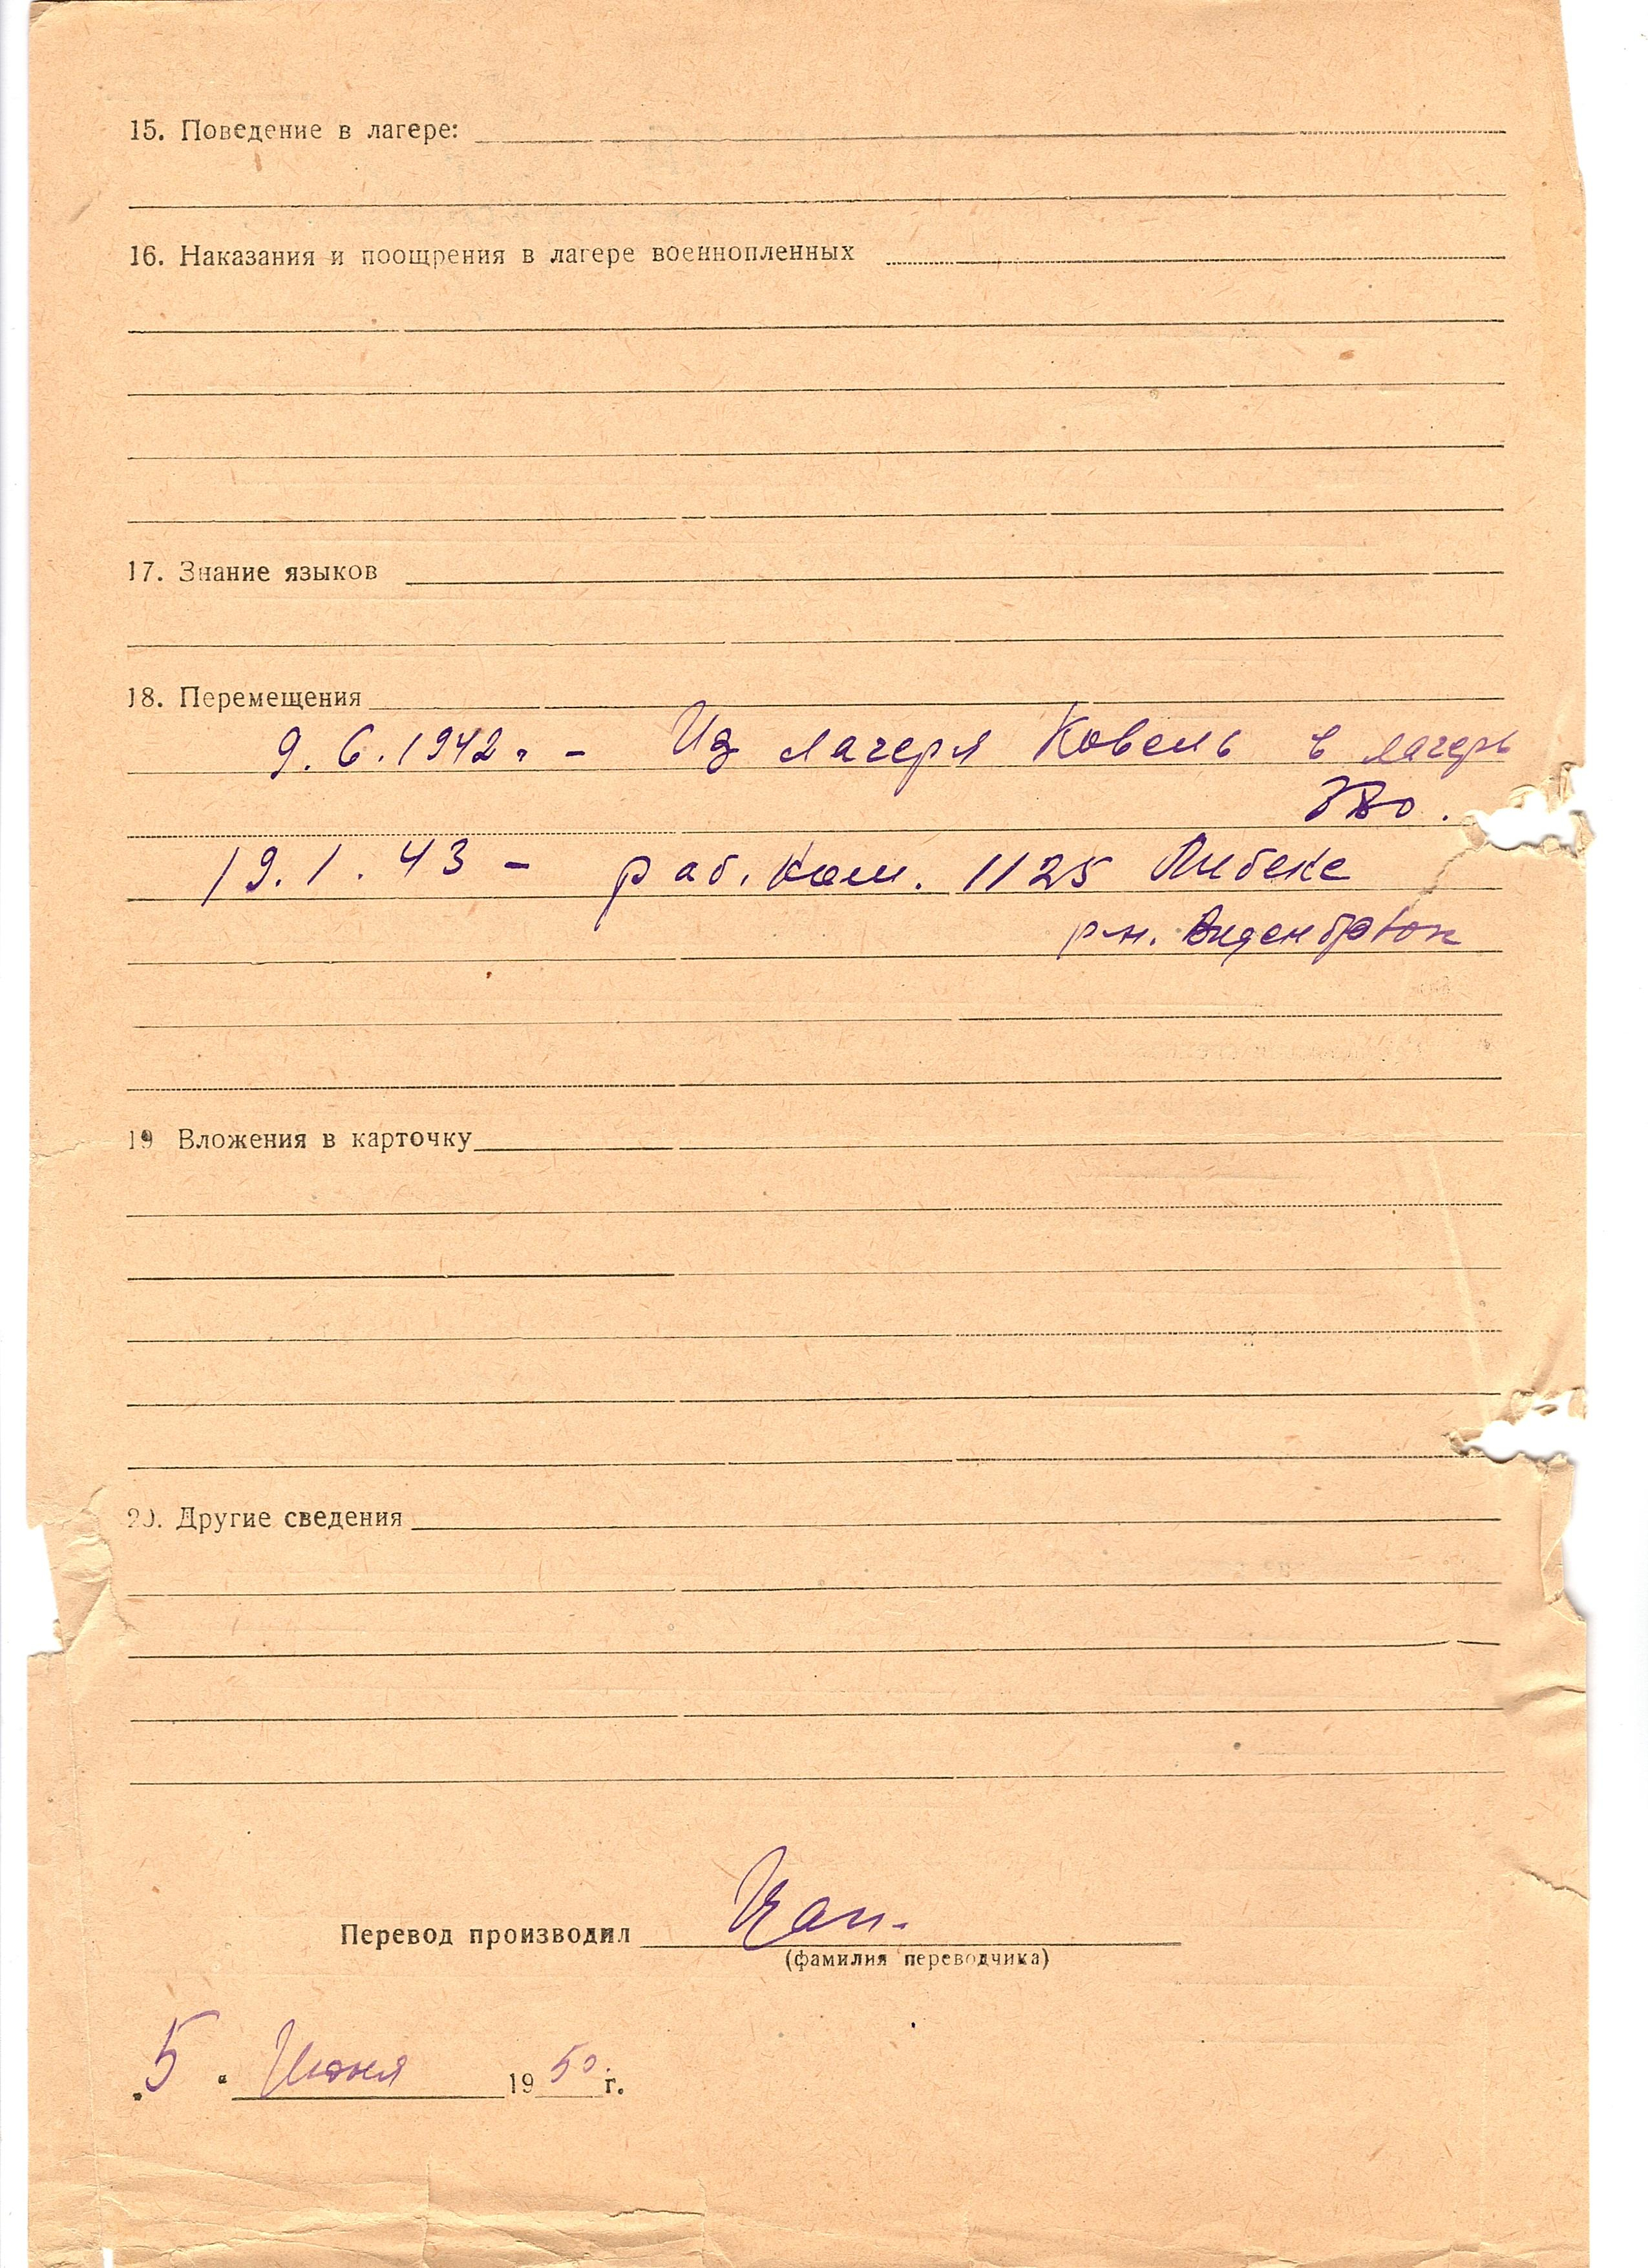 15. Поведение в лагере:
16. Наказания и поощрения в лагере военнопленных
17. Знание языков
18. Перемещения
9.6.1942г. - Из лагеря Ковель в лагерь
19.1.43 - раб. ком. 1125 Либеке
р-н. Виденбрюк
19 Вложения в карточку
20. Другие сведения
Перевод производил
(фамилия переводчика)
"5" Июня 1950 г.